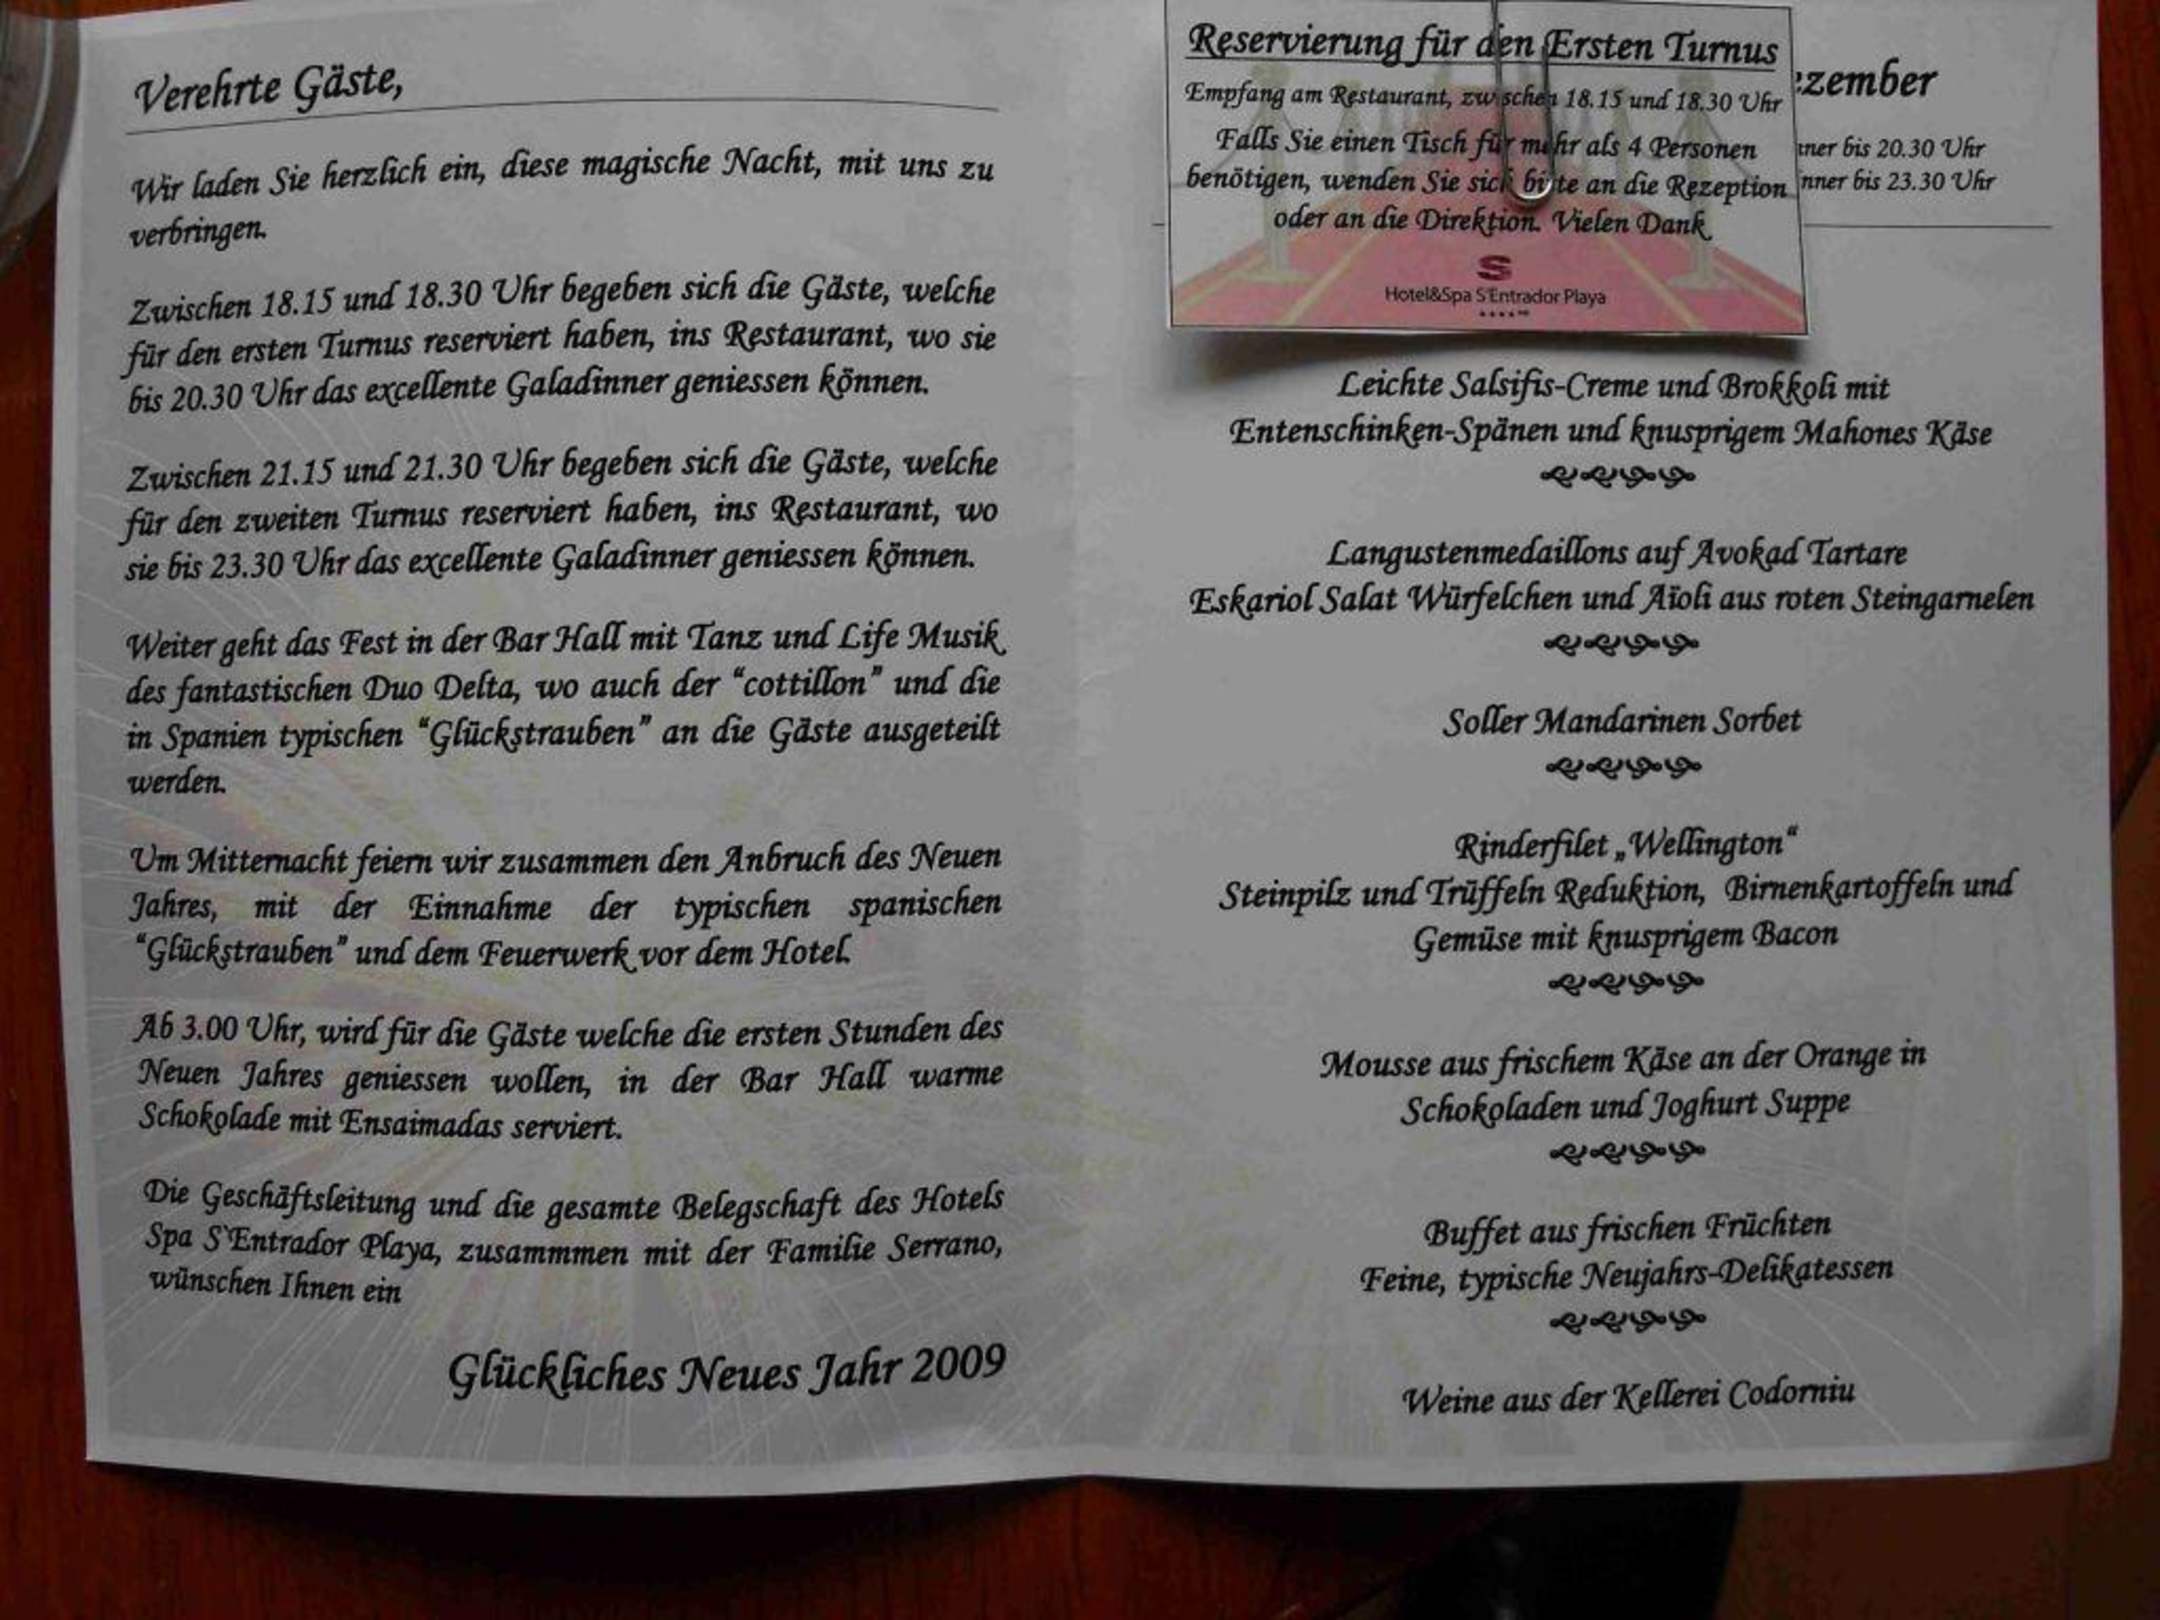 Verehrte Gäste,
Wir laden Sie herzlich ein, diese magische Nacht, mit uns zu
verbringen.
Zwischen 18.15 und 18.30 Uhr begeben sich die Gäste, welche
für den ersten Turnus reserviert haben, ins Restaurant, wo sie
bis 20.30 Uhr das excellente Galadinner geniessen können.
Zwischen 21.15 und 21.30 Uhr begeben sich die Gäste, welche
für den zweiten Turnus reserviert haben, ins Restaurant, wo
sie bis 23.30 Uhr das excellente Galadinner geniessen können.
Weiter geht das Fest in der Bar Hall mit Tanz und Life Musik
des fantastischen Duo Delta, wo auch der “cottillon” und die
in Spanien typischen “Glückstrauben” an die Gäste ausgeteilt
werden.
Um Mitternacht feiern wir zusammen den Anbruch des Neuen
Jahres, mit der Einnahme der typischen spanischen
“Glückstrauben” und dem Feuerwerk vor dem Hotel.
Ab 3.00 Uhr, wird für die Gäste welche die ersten Stunden des
Neuen Jahres geniessen wollen, in der Bar Hall warme
Schokolade mit Ensaimadas serviert.
Die Geschäftsleitung und die gesamte Belegschaft des Hotels
Spa S`Entrador Playa, zusammmen mit der Familie Serrano,
wünschen Ihnen ein
Glückliches Neues Jahr 2009
Reservierung für den Ersten Turnus
Empfang am Restaurant, zwischen 18.15 und 18.30 Uhr
Falls Sie einen Tisch für mehr als 4 Personen
benötigen, wenden Sie sich bitte an die Rezeption
oder an die Direktion. Vielen Dank
S
Hotel&Spa S'Entrador Playa
ezember
nner bis 20.30 Uhr
nner bis 23.30 Uhr
Leichte Salsifis-Creme und Brokkoli mit
Entenschinken-Spänen und knusprigem Mahones Käse
Langustenmedaillons auf Avokad Tartare
Eskariol Salat Würfelchen und Aïoli aus roten Steingarnelen
Soller Mandarinen Sorbet
Rinderfilet „Wellington“
Steinpilz und Trüffeln Reduktion, Birnenkartoffeln und
Gemüse mit knusprigem Bacon
Mousse aus frischem Käse an der Orange in
Schokoladen und Joghurt Suppe
Buffet aus frischen Früchten
Feine, typische Neujahrs-Delikatessen
Weine aus der Kellerei Codorniu